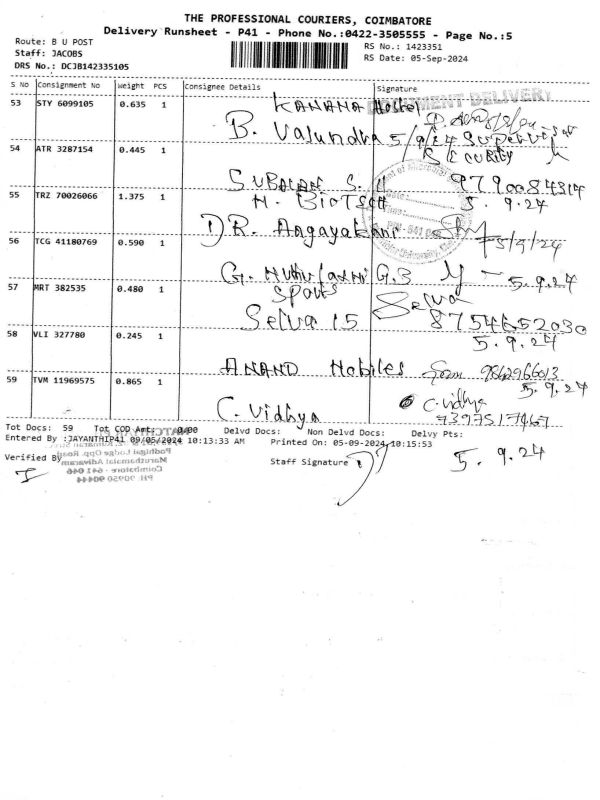 THE PROFESSIONAL COURIERS, COIMBATORE
Delivery Runsheet - P41 - Phone No.:0422-3505555 - Page No.:5
Route: B U POST
Staff: JACOBS
DRS No.: DCJB142335105
RS No.: 1423351
RS Date: 05-Sep-2024
S No Consignment No Weight PCS Consignee Details Signature
53 STY 6099105 0.635 1 KANANA Hostel
B. Vasundra 5/9/24
54 ATR 3287154 0.445 1 SECURITY
SUBALAN S. 9790084314
55 TRZ 70026066 1.375 1 M. BIOTECH 5.9.24
DR. Angayakani
56 TCG 41180769 0.590 1
G. Muthulaxmi G.3 5.9.24
57 MRT 382535 0.480 1 Sports Selva
Selva 15 8754652030
58 VLI 327780 0.245 1 5.9.24
ANAND Mobiles 9842966013
59 TVM 11969575 0.865 1 5.9.24
C. Vidhya C. vidhya
Tot Docs: 59 Tot COD Amt: 0.00 Delvd Docs: Non Delvd Docs: Delvy Pts:
Entered By :JAYANTHIP41 09/05/2024 10:13:33 AM Printed On: 05-09-2024 10:15:53
Verified By Staff Signature 5.9.24